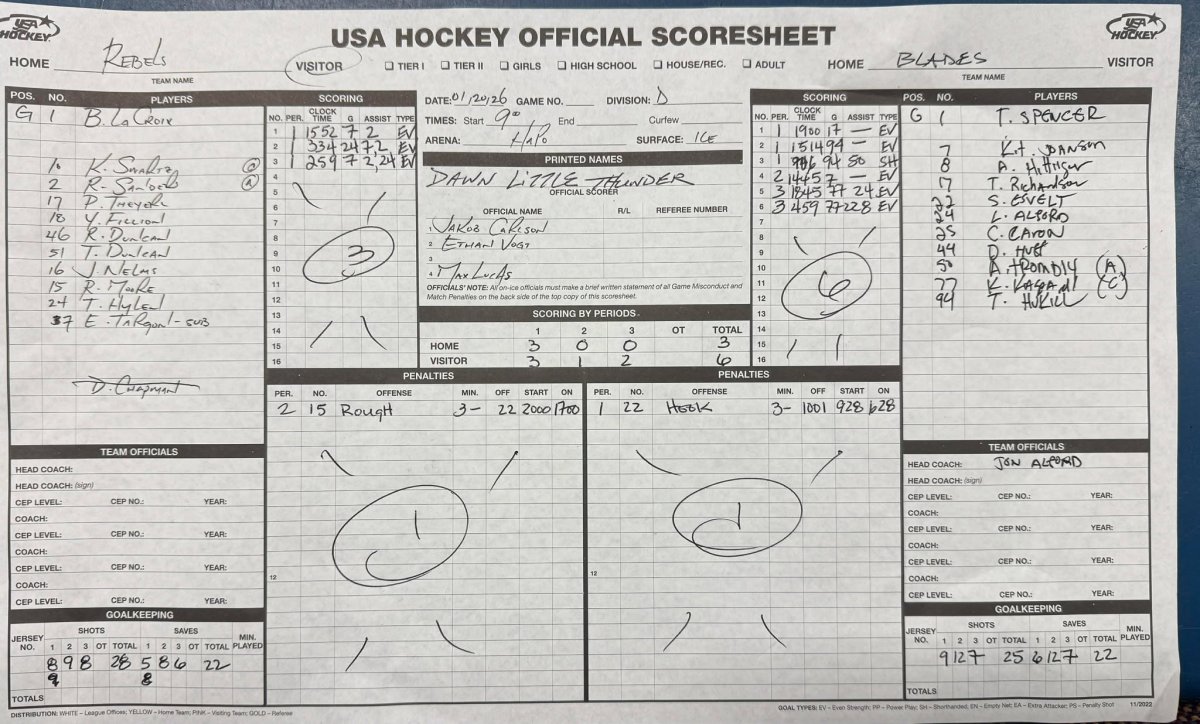 USA HOCKEY
USA HOCKEY OFFICIAL SCORESHEET
USA HOCKEY
HOME REBELS VISITOR
TEAM NAME
TIER I TIER II GIRLS HIGH SCHOOL HOUSE/REC. ADULT
HOME BLADES VISITOR
TEAM NAME
POS. NO. PLAYERS
G 1 B. LaCroix
K. Swartz
2 R. Sanders
17 P. Theyerl
18 Y. Fillion
46 R. Duncan
51 T. Duncan
16 J. Nelms
15 R. Moore
24 T. Hylen
37 E. Targon - SUB
D. Chapman
SCORING
NO. PER. CLOCK TIME G ASSIST TYPE
1 1 1552 7 2 EV
2 1 334 24 7,2 EV
3 1 259 7 2,24 EV
4
5
6
7
8
9
10
11
12
13
14
15
16
3
DATE: 01/20/26 GAME NO. DIVISION: D
TIMES: Start 9:00 End Curfew
ARENA: HAPO SURFACE: ICE
PRINTED NAMES
DAWN LITTLE THUNDER
OFFICIAL SCORER
OFFICIAL NAME R/L REFEREE NUMBER
1 JAKOB CARLSON
2 ETHAN VOGT
3
4 MAX LUCAS
OFFICIALS' NOTE: All on-ice officials must make a brief written statement of all Game Misconduct and
Match Penalties on the back side of the top copy of this scoresheet.
SCORING BY PERIODS
1 2 3 OT TOTAL
HOME 3 0 0 3
VISITOR 3 1 2 6
SCORING
NO. PER. CLOCK TIME G ASSIST TYPE
1 1 1900 17 — EV
2 1 1514 94 — EV
3 1 94 50 SH
4 2 1445 7 — EV
5 3 1845 77 24 EV
6 3 459 77 228 EV
7
8
9
10
11
12
13
14
15
16
6
POS. NO. PLAYERS
G 1 T. SPENCER
7
8
17 T. Richardson
22 S. ESVELT
24 L. ALFORD
25 C. CARON
44 D. HUFF
50 (A)
77 (C)
94 T. HUKILL
PENALTIES
PER. NO. OFFENSE MIN. OFF START ON
2 15 Rough 3- 22 2000 1700
1
12
PENALTIES
PER. NO. OFFENSE MIN. OFF START ON
1 22 HOOK 3- 1001 928 628
1
12
TEAM OFFICIALS
HEAD COACH:
HEAD COACH: (sign)
CEP LEVEL: CEP NO.: YEAR:
COACH:
CEP LEVEL: CEP NO.: YEAR:
COACH:
CEP LEVEL: CEP NO.: YEAR:
COACH:
CEP LEVEL: CEP NO.: YEAR:
GOALKEEPING
JERSEY NO. SHOTS SAVES MIN. PLAYED
1 2 3 OT TOTAL 1 2 3 OT TOTAL
8 9 8 28 5 8 6 22
9 8
TOTALS
TEAM OFFICIALS
HEAD COACH: JON ALFORD
HEAD COACH: (sign)
CEP LEVEL: CEP NO.: YEAR:
COACH:
CEP LEVEL: CEP NO.: YEAR:
COACH:
CEP LEVEL: CEP NO.: YEAR:
COACH:
CEP LEVEL: CEP NO.: YEAR:
GOALKEEPING
JERSEY NO. SHOTS SAVES MIN. PLAYED
1 2 3 OT TOTAL 1 2 3 OT TOTAL
9 12 7 25 6 12 7 22
TOTALS
DISTRIBUTION: WHITE – League Offices; YELLOW – Home Team; PINK – Visiting Team; GOLD – Referee
GOAL TYPES: EV – Even Strength; PP – Power Play; SH – Shorthanded; EN – Empty Net; EA – Extra Attacker; PS – Penalty Shot 11/2022